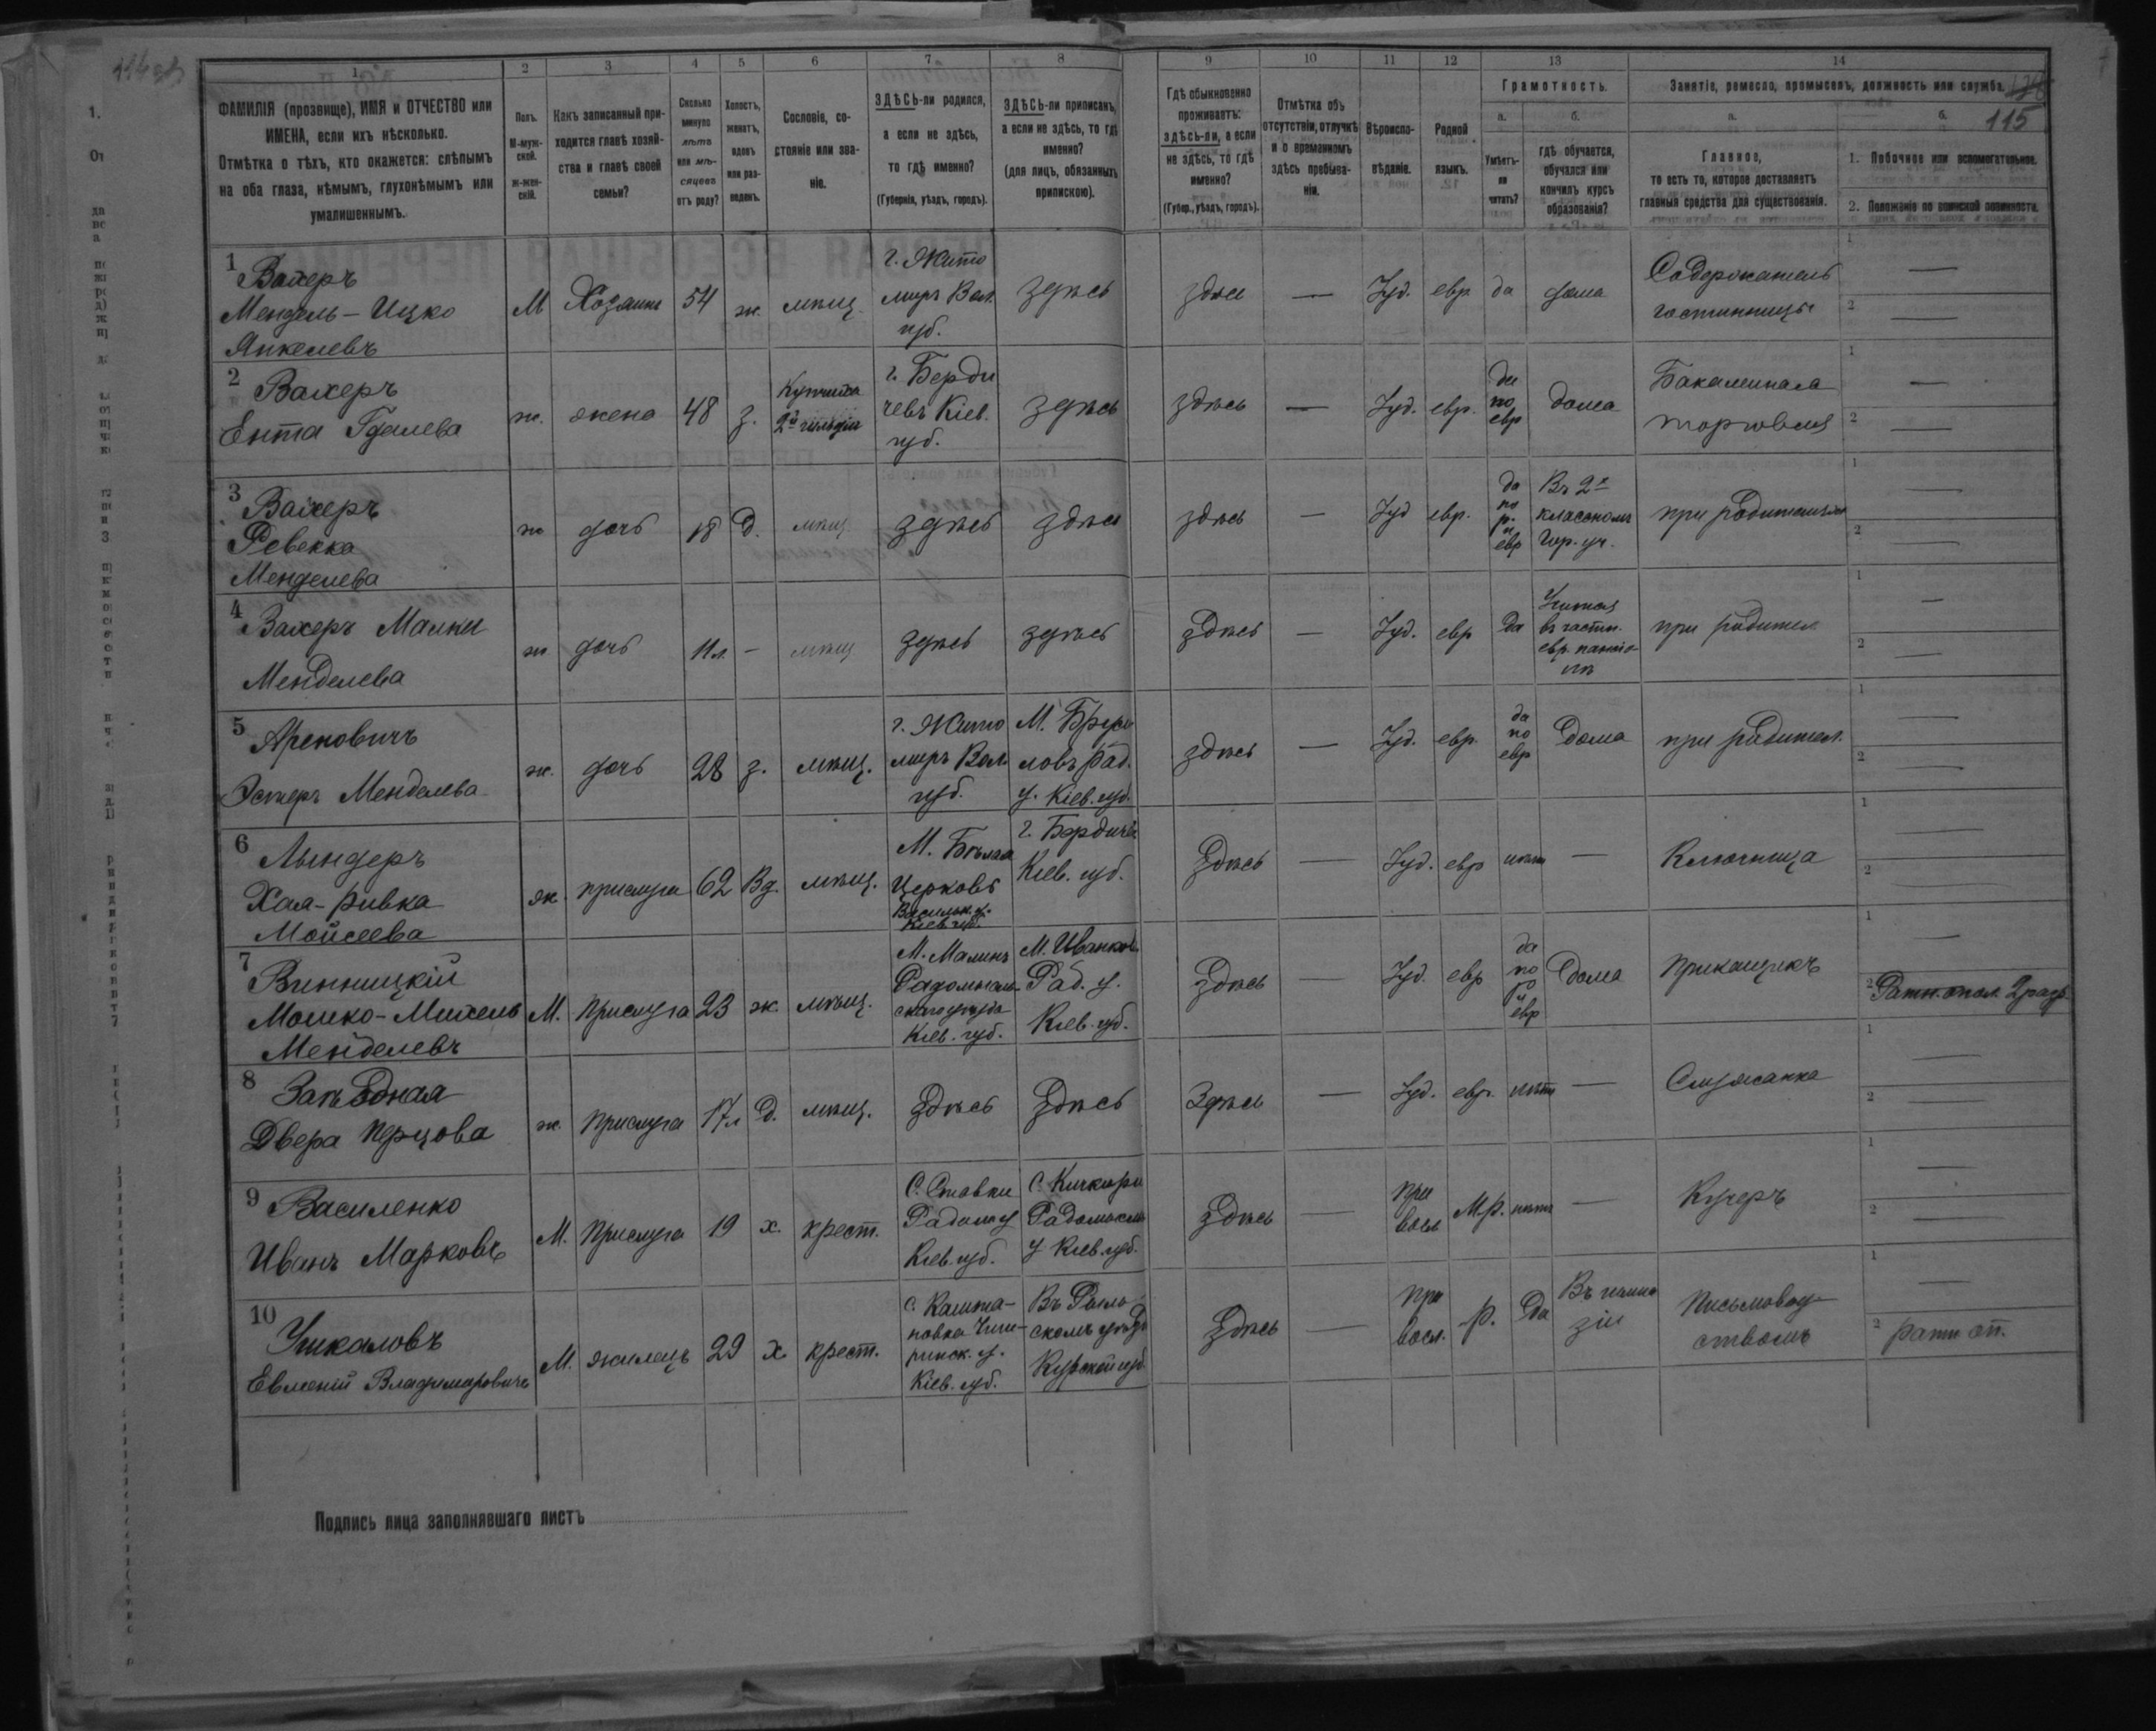 115
1 2 3 4 5 6 7 8 9 10 11 12 13 14
ФАМИЛІЯ (прозвище), ИМЯ и ОТЧЕСТВО или
ИМЕНА, если ихъ нѣсколько.
Отмѣтка о тѣхъ, кто окажется: слѣпымъ
на оба глаза, нѣмымъ, глухонѣмымъ или
умалишеннымъ.
Полъ.
М-муж-
ской.
ж-жен-
скій.
Какъ записанный при-
ходится главѣ хозяй-
ства и главѣ своей
семьи?
Сколько
минуло
лѣтъ
или мѣ-
сяцевъ
отъ роду?
Холостъ,
женатъ,
вдовъ
или раз-
веденъ.
Сословіе, со-
стояніе или зва-
ніе.
ЗДѢСЬ-ли родился,
а если не здѣсь,
то гдѣ именно?
(Губернія, уѣздъ, городъ).
ЗДѢСЬ-ли приписанъ,
а если не здѣсь, то гдѣ
именно?
(для лицъ, обязанныхъ
припискою).
Гдѣ обыкновенно
проживаетъ:
здѣсь-ли, а если
не здѣсь, то гдѣ
именно?
(Губер., уѣздъ, городъ).
Отмѣтка объ
отсутствіи, отлучкѣ
и о временномъ
здѣсь пребыва-
ніи.
Вѣроиспо-
вѣданіе.
Родной
языкъ.
Грамотность.
а.
Умѣетъ-
ли
читать?
б.
гдѣ обучается,
обучался или
кончилъ курсъ
образованія?
Занятіе, ремесло, промыселъ, должность или служба.
а.
Главное,
то есть то, которое доставляетъ
главныя средства для существованія.
б.
1. Побочное или вспомогательное.
2. Положеніе по воинской повинности.
1 Вахеръ
Мендель-Ицко
Янкелевъ
М Хозяинъ 54 ж. мѣщ.
г. Жито
миръ Вол.
губ.
здѣсь здѣсь — Іуд. евр. да дома
Содержатель
гостинницы
1 —
2 —
2 Вахеръ
Ента Гдалева
ж. жена 48 з.
Купчиха
2й гильдіи
г. Берди
чевъ Кіев.
губ.
здѣсь здѣсь — Іуд. евр.
да
по
евр
дома
Бакалейная
торговля
1 —
2 —
3 Вахеръ
Ревекка
Менделева
ж дочь 18 Д. мѣщ. здѣсь здѣсь здѣсь — Іуд евр.
да
по
р.
и
евр
Въ 2х
класномъ
Гор. уч.
при родителяхъ
1 —
2 —
4 Вахеръ Малки
Менделева
ж дочь 11 л. — мѣщ здѣсь здѣсь здѣсь — Іуд. евр да
въ частн.
евр. пансіо-
нѣ
при родител.
1 —
2 —
5 Ареновичъ
Эстеръ Менделева
ж. дочь 28 з. мѣщ.
г. Жито
миръ Вол.
губ.
М. Бруси
ловъ Рад.
у. Кіев. губ.
здѣсь — Іуд. евр.
да
по
евр
Дома
при родител.
1 —
2 —
6 Линдеръ
Хая-Ривка
Мойсеева
ж. прислуга 62 Вд. мѣщ.
М. Бѣлая
Церковь
Васильк. у.
Кіев. губ.
г. Бердичев
Кіев. губ.
Здѣсь — Іуд. евр нѣтъ — Ключница
1 —
2 —
7 Винницкій
Мошко-Михель
Менделевъ
М. Прислуга 23 ж. мѣщ.
М. Малинъ
Радомысль-
скаго уѣзда
Кіев. губ.
М. Иванков.
Рад. у.
Кіев. губ.
Здѣсь — Іуд. евр
да
по
р
и
евр
Дома
Прикащикъ
1 —
2 Ратн. опол. 2 разр.
8
Двера Перцова
ж. Прислуга 17 л Д. мѣщ. Здѣсь Здѣсь Здѣсь — Іуд. евр. нѣтъ — Служанка
1 —
2 —
9 Василенко
Иванъ Марковъ
М. Прислуга 19 х. крест.
С. Ставки
Радом у
Кіев. губ.
С. Кичкири
Радомысл
у Кіев. губ.
Здѣсь —
Пра
восл
М.р. нѣтъ — Кучеръ
1 —
2 —
10 Ушкаловъ
Евгеній Владимировичъ
М. жилецъ 29 х крест.
с. Кашта-
новка Чиги-
ринск. у.
Кіев. губ.
Въ Рыль-
скомъ уѣздѣ
Курской губ.
Здѣсь —
Пра
восл.
р. Да
Въ гимна
зіи
Письмовод-
ствомъ
1 —
2 ратн оп.
Подпись лица заполнявшаго листъ